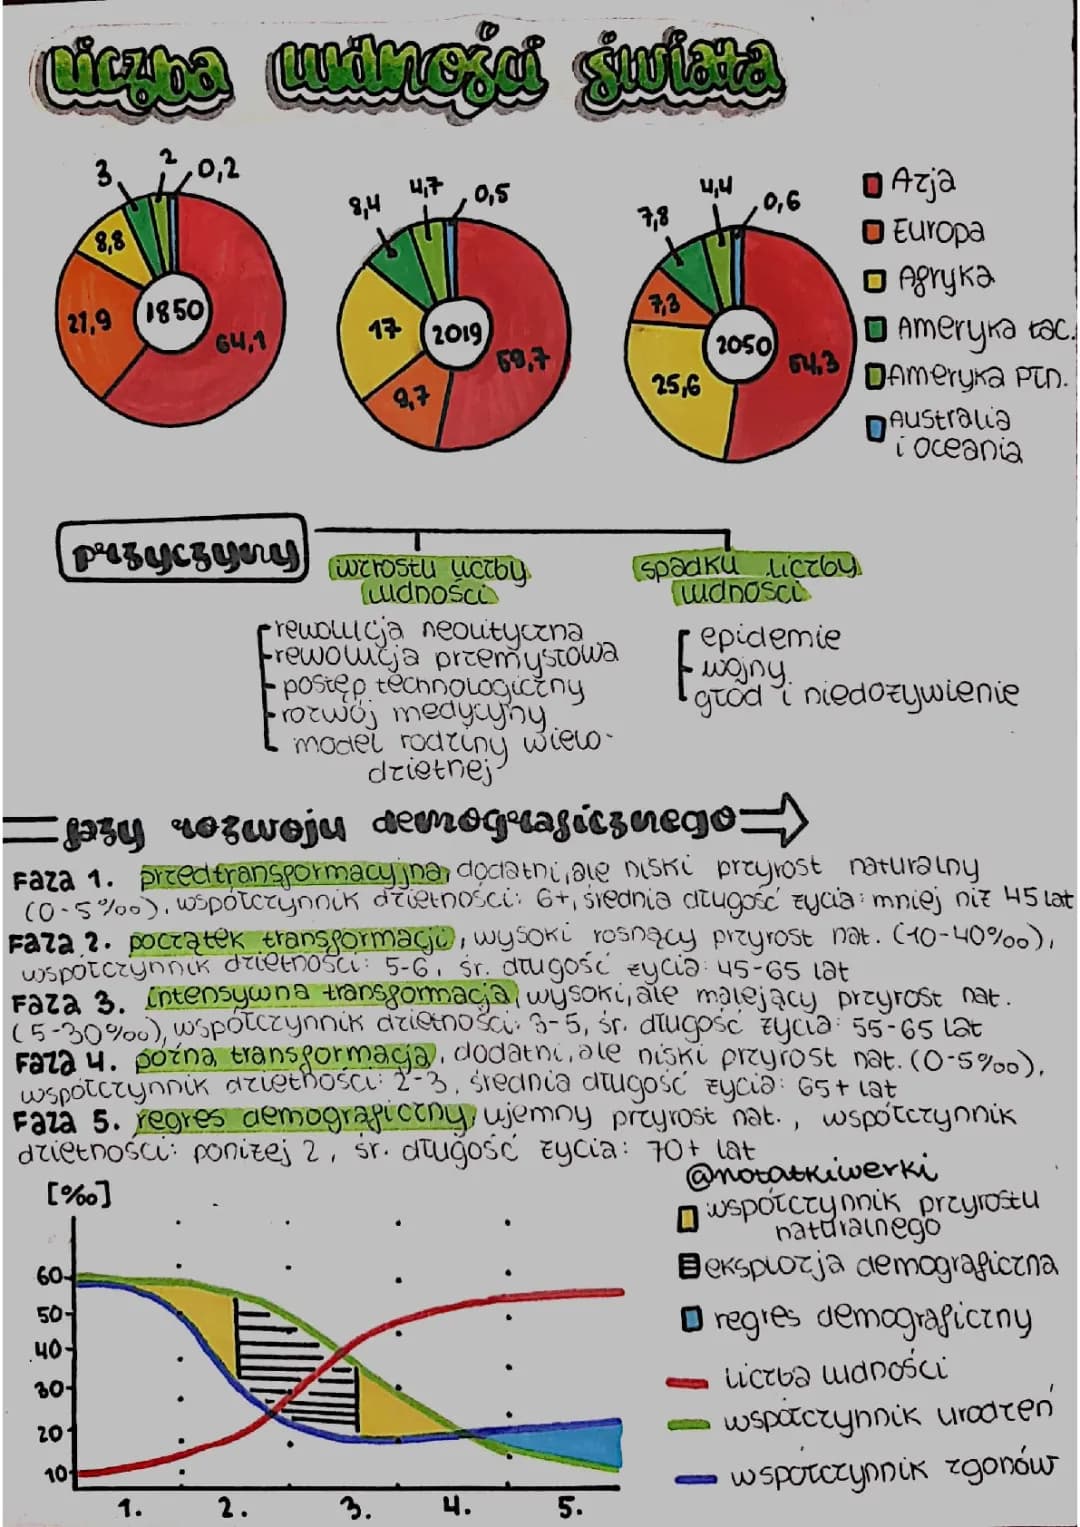 liczba ludności świata
3 2 0,2
8,8
21,9
1850
64,1
8,4 4,7 0,5
17
2019
59,7
9,7
7,8 4,4 0,6
7,3
2050
54,3
25,6
Azja
Europa
Afryka
Ameryka łac.
Ameryka Płn.
Australia
i oceania
przyczyny
wzrostu liczby
ludności
spadku liczby
ludności
rewolucja neolityczna
rewolucja przemysłowa
postęp technologiczny
rozwój medycyny
model rodziny wielo-
dzietnej
epidemie
wojny
głód i niedożywienie
fazy rozwoju demograficznego
Faza 1. przedtransformacyjna, dodatni, ale niski przyrost naturalny
(0-5‰), współczynnik dzietności: 6+, średnia długość życia: mniej niż 45 lat
Faza 2. początek transformacji, wysoki rosnący przyrost nat. (10-40‰),
współczynnik dzietności: 5-6, śr. długość życia: 45-65 lat
Faza 3. intensywna transformacja, wysoki, ale malejący przyrost nat.
(5-30‰), współczynnik dzietności: 3-5, śr. długość życia: 55-65 lat
Faza 4. późna transformacja, dodatni, ale niski przyrost nat. (0-5‰),
współczynnik dzietności: 2-3, średnia długość życia: 65+ lat
Faza 5. regres demograficzny, ujemny przyrost nat., współczynnik
dzietności: poniżej 2, śr. długość życia: 70+ lat
@notatkiwerki
[‰]
60
50
40
30
20
10
1. 2. 3. 4. 5.
współczynnik przyrostu
naturalnego
eksplozja demograficzna
regres demograficzny
liczba ludności
współczynnik urodzeń
współczynnik zgonów